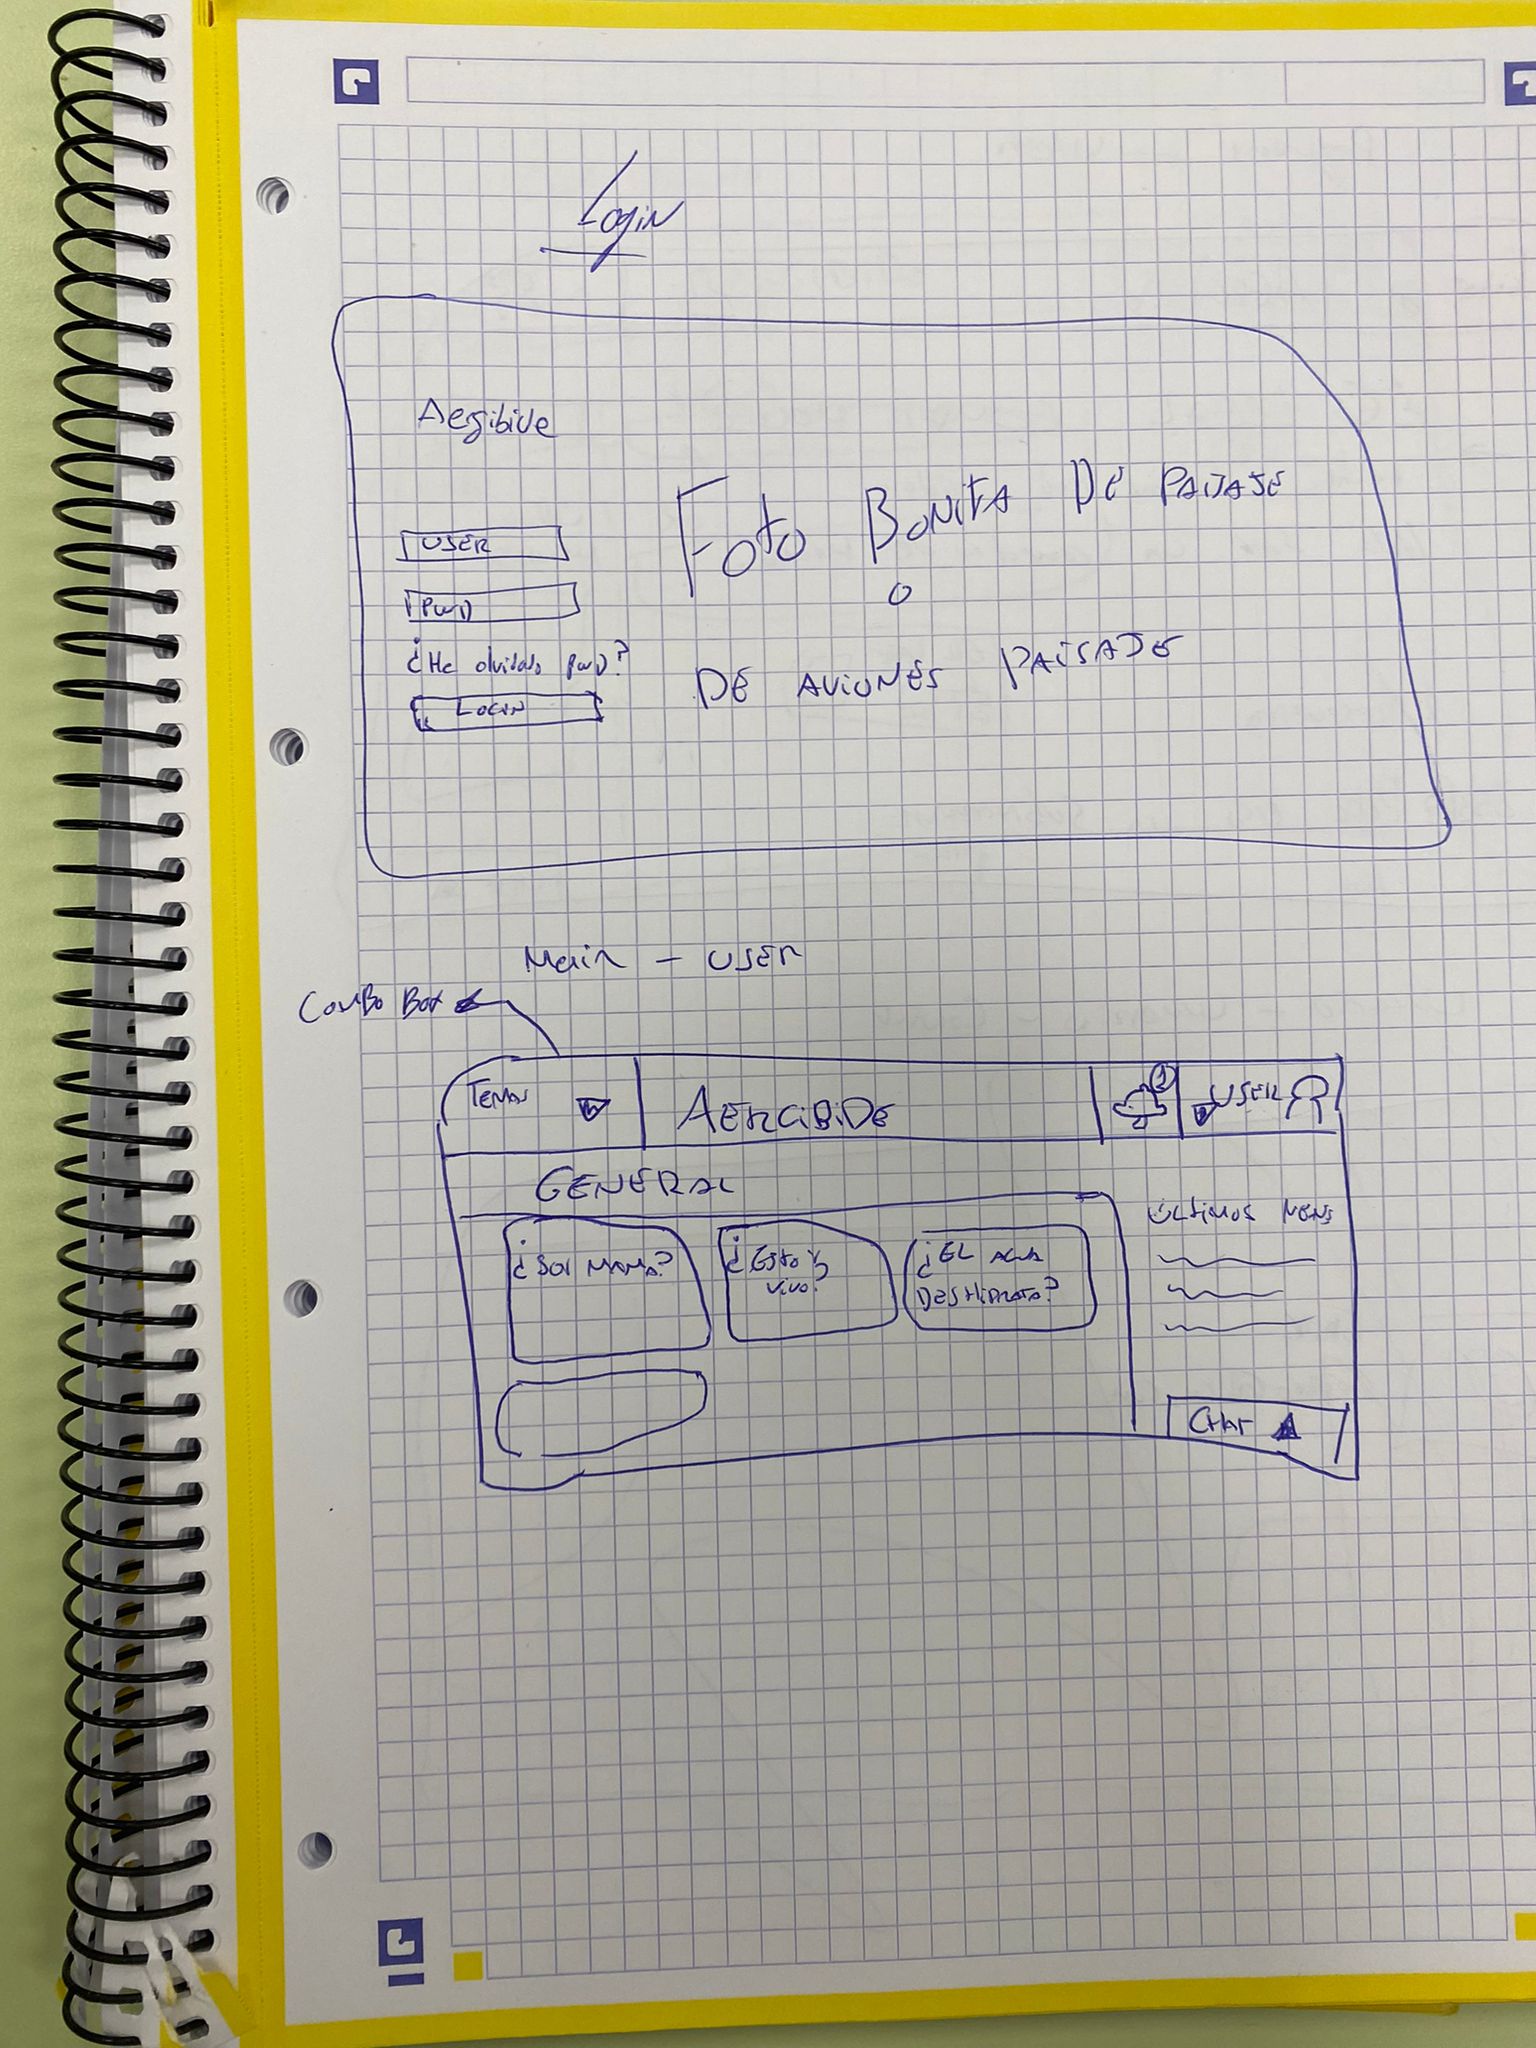 Login
Aergibide
USER
PWD
¿He olvidado pwd?
LOGIN
Foto BONITA DE PAISAJE
O
DE AVIONES PAISAJE
Main - USER
COMBO BOX
TEMAS
AERGIBIDE
1
USER
GENERAL
¿SOY MAMA?
¿Estoy
vivo?
¿EL AGUA
DESHIDRATA?
ÚLTIMOS MENS
CHAT